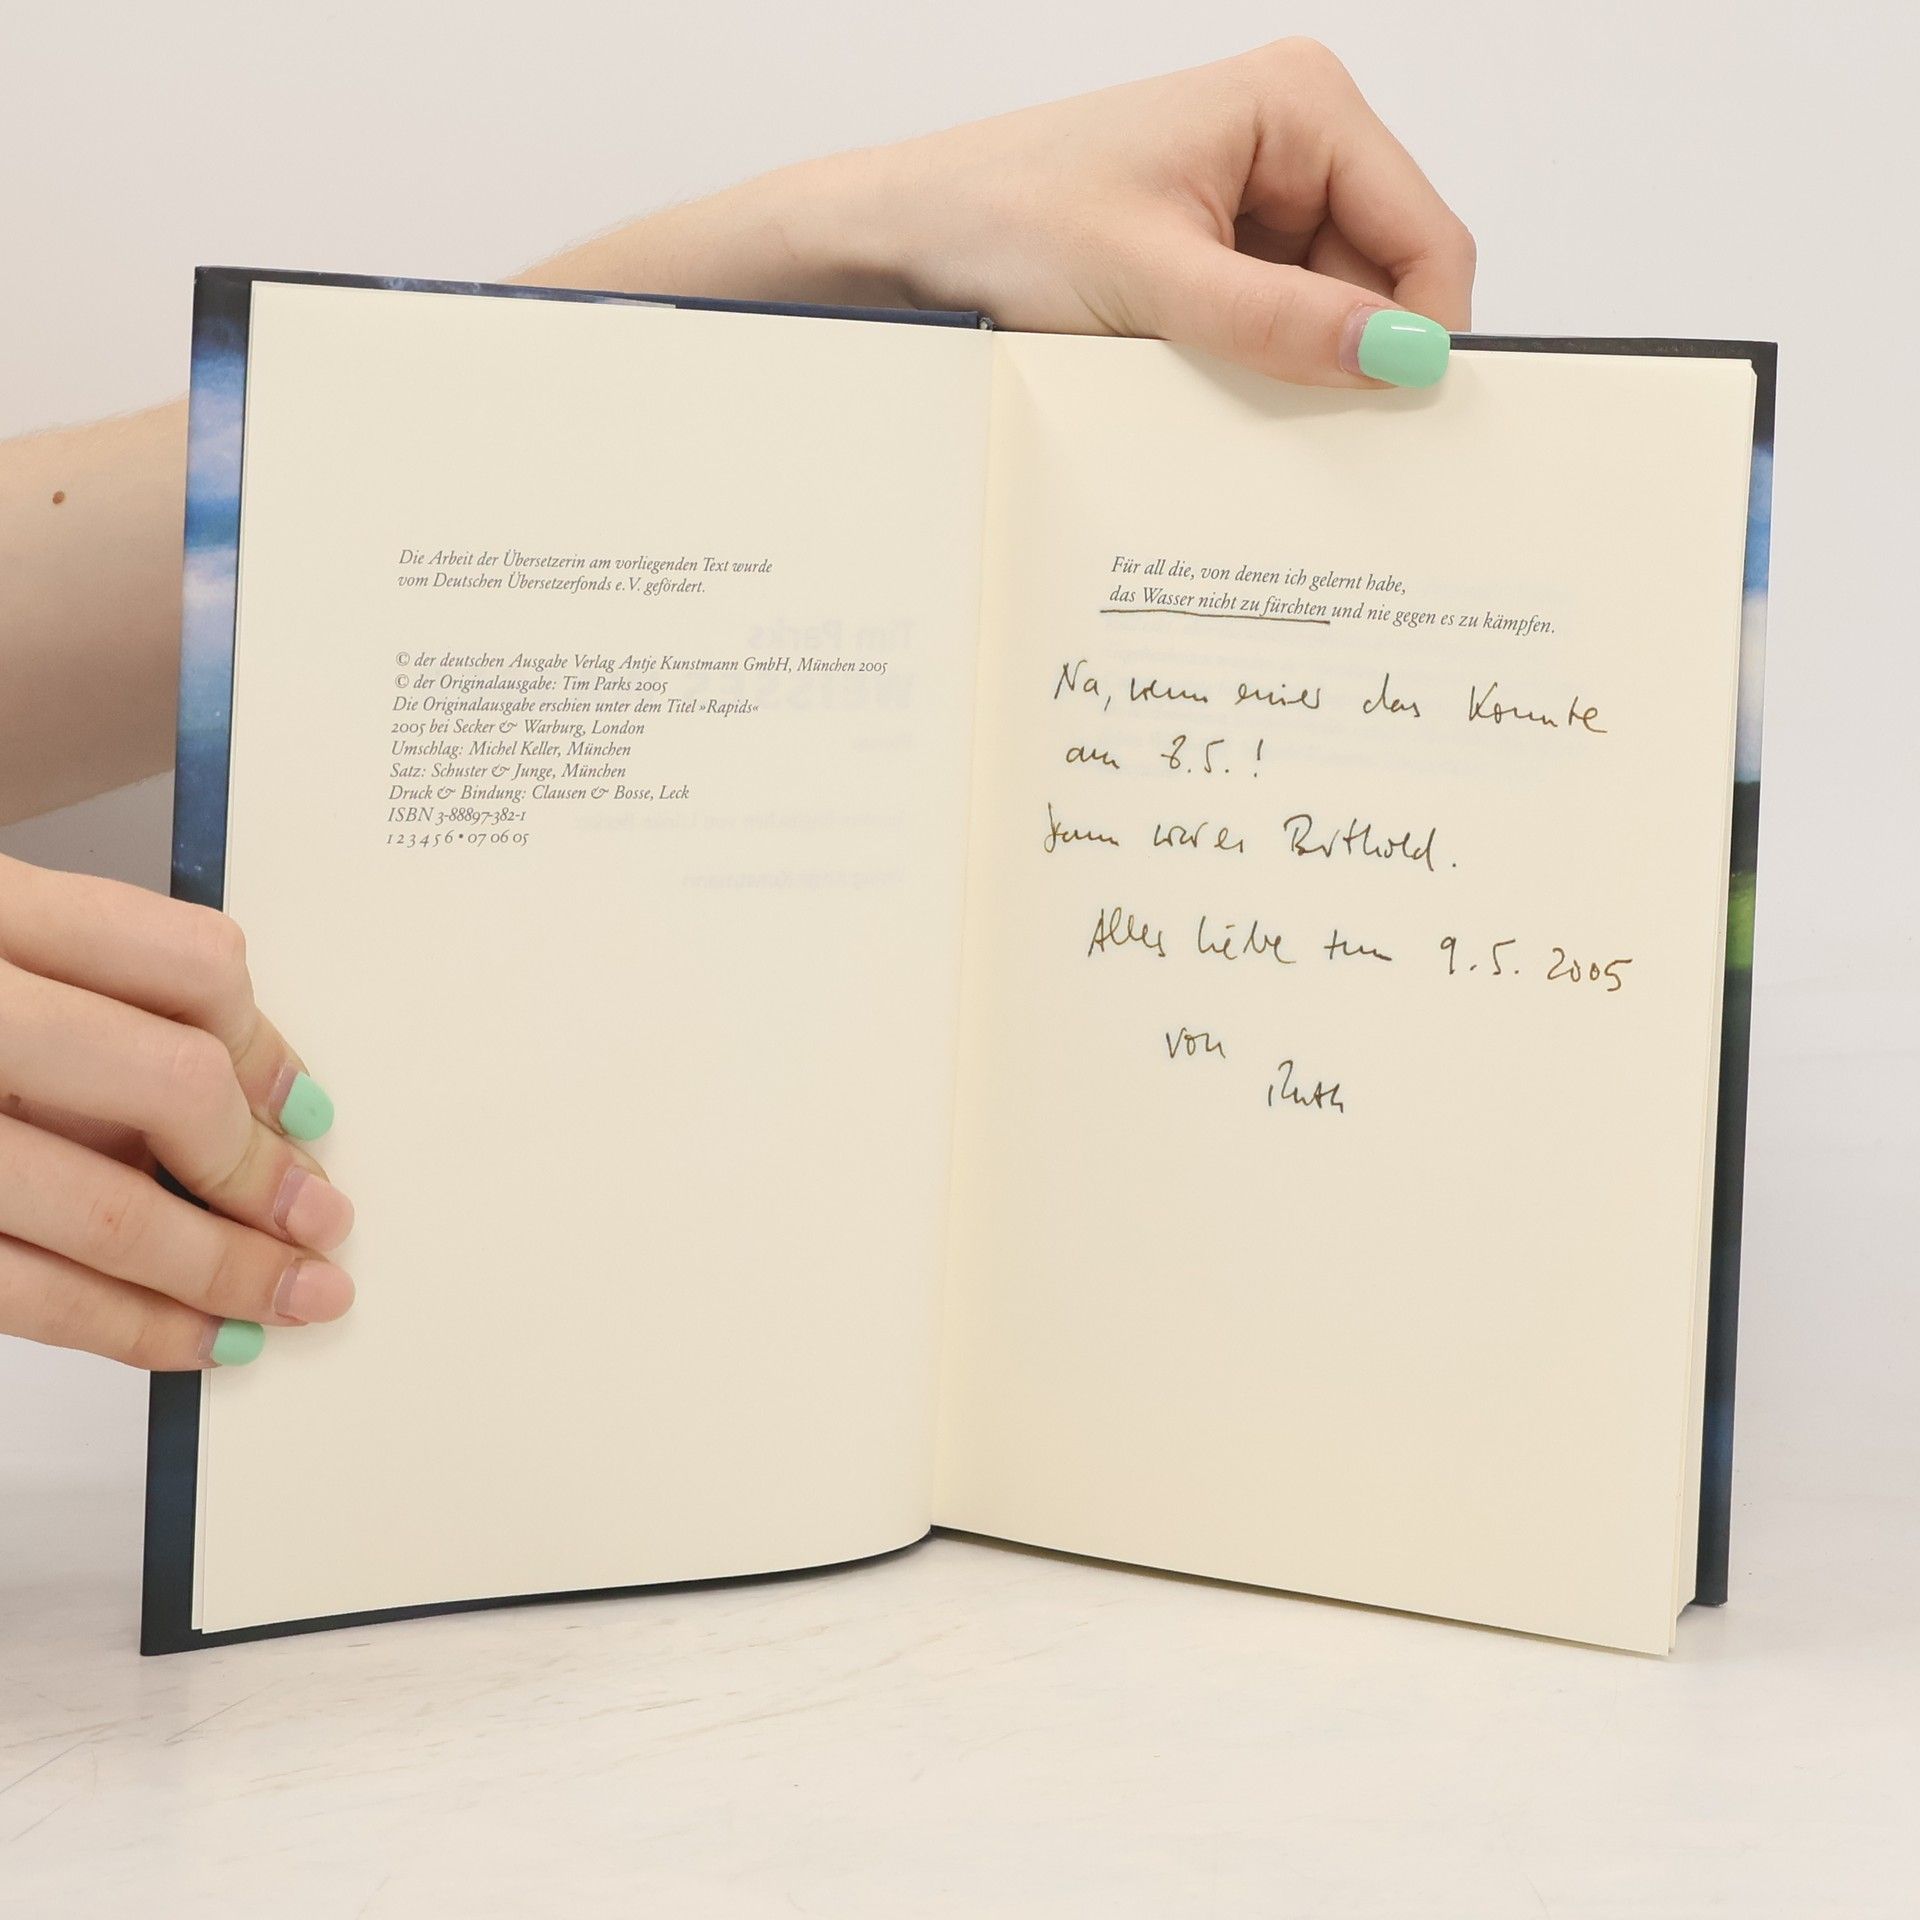 Die Arbeit der Übersetzerin am vorliegenden Text wurde
vom Deutschen Übersetzerfonds e.V. gefördert.
© der deutschen Ausgabe Verlag Antje Kunstmann GmbH, München 2005
© der Originalausgabe: Tim Parks 2005
Die Originalausgabe erschien unter dem Titel »Rapids«
2005 bei Secker & Warburg, London
Umschlag: Michel Keller, München
Satz: Schuster & Junge, München
Druck & Bindung: Clausen & Bosse, Leck
ISBN 3-88897-382-1
1 2 3 4 5 6 • 07 06 05
Für all die, von denen ich gelernt habe,
das Wasser nicht zu fürchten und nie gegen es zu kämpfen.
Na, wenn einer das konnte
am 8.5.!
dann war es Berthold.
Alles Liebe zum 9.5.2005
von
Ruth